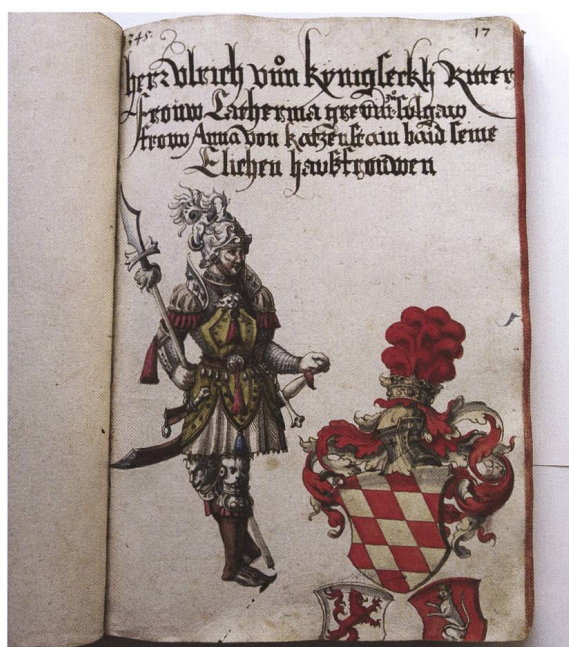 345.
17
herr Ulrich vůn kynigseckh Ritter
frouw Catherina
frow Anna von katzenstain baid seine
Elichen haußfrouwen